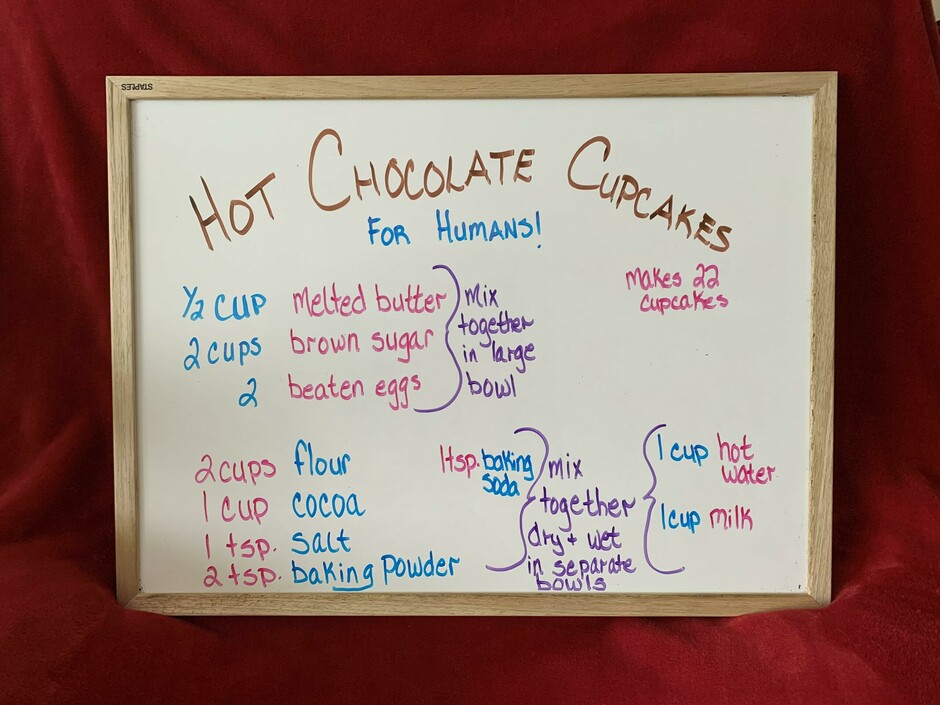 STAPLES
HOT CHOCOLATE CUPCAKES
FOR HUMANS!
makes 22
cupcakes
1/2 cup melted butter
2 cups brown sugar
2 beaten eggs
mix
together
in large
bowl
2 cups flour
1 cup cocoa
1 tsp. salt
2 tsp. baking powder
1 tsp. baking
soda
mix
together
dry + wet
in separate
bowls
1 cup hot
water
1 cup milk